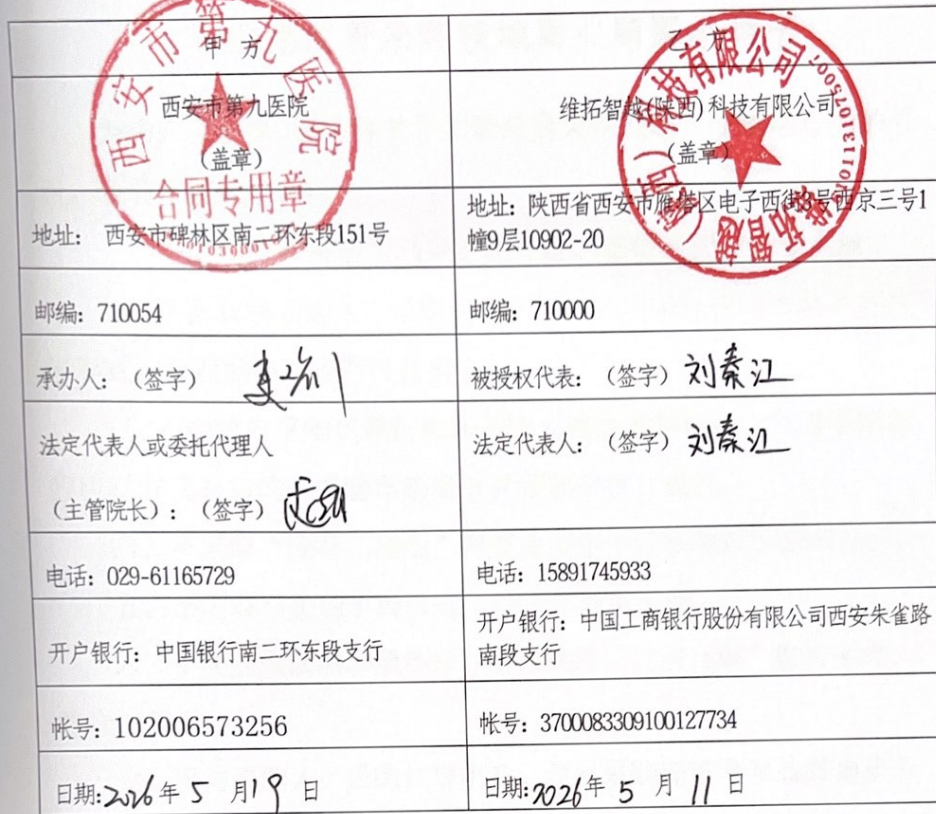 甲 方
乙 方
西安市第九医院
(盖章)
维拓智越(陕西)科技有限公司
(盖章)
西安市第九医院
合同专用章
维拓智越(陕西)科技有限公司
地址: 西安市碑林区南二环东段151号
地址: 陕西省西安市雁塔区电子西街3号西京三号1
幢9层10902-20
邮编: 710054
邮编: 710000
承办人: (签字)
被授权代表: (签字) 刘秦江
法定代表人或委托代理人
(主管院长): (签字)
法定代表人: (签字) 刘秦江
电话: 029-61165729
电话: 15891745933
开户银行: 中国银行南二环东段支行
开户银行: 中国工商银行股份有限公司西安朱雀路
南段支行
帐号: 102006573256
帐号: 3700083309100127734
日期: 2026年 5 月19 日
日期: 2026年 5 月 11 日